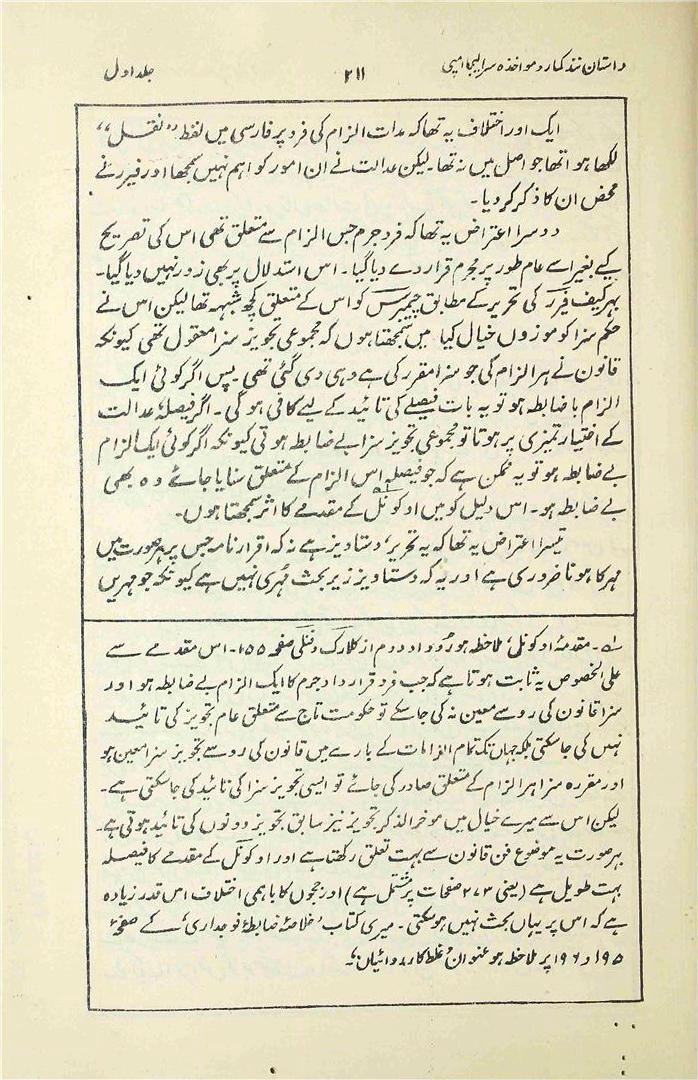 داستان نند کمار و مواخذہ سر الیجا امپی ۲۱۱ جلد اول
ایک اور اختلاف یہ تھا کہ مدات الزام کی فرد پر فارسی میں لفظ ”نقل“
لکھا ہوا تھا جو اصل میں نہ تھا۔ لیکن عدالت نے ان امور کو اہم نہیں سمجھا اور فیرر نے
محض ان کا ذکر کر دیا۔
دوسرا اعتراض یہ تھا کہ فرد جرم جس الزام سے متعلق تھی اس کی تصریح
کیے بغیر اسے عام طور پر مجرم قرار دے دیا گیا۔ اس استدلال پر بھی زور نہیں دیا گیا۔
بہر کیف فیرر کی تحریر کے مطابق چیمبرس کو اس کے متعلق کچھ شبہہ تھا لیکن اس نے
حکم سزا کو موزوں خیال کیا میں سمجھتا ہوں کہ مجموعی تجویز سزا معقول تھی کیونکہ
قانون نے ہر الزام کی جو سزا مقرر کی ہے وہی دی گئی تھی۔ پس اگر کوئی ایک
الزام با ضابطہ ہو تو یہ بات فیصلے کی تائید کے لیے کافی ہوگی۔ اگر فیصلۂ عدالت
کے اختیار تمیزی پر ہوتا تو مجموعی تجویز سزا بے ضابطہ ہوتی کیونکہ اگر کوئی ایک الزام
بے ضابطہ ہو تو یہ ممکن ہے کہ جو فیصلہ اس الزام کے متعلق سنایا جائے وہ بھی
بے ضابطہ ہو۔ اس دلیل کو میں اوکونل کے مقدمے کا اثر سمجھتا ہوں۔
تیسرا اعتراض یہ تھا کہ یہ تحریر، دستاویز ہے نہ کہ اقرار نامہ جس پر ہر صورت میں
مہر کا ہونا ضروری ہے اور یہ کہ دستاویز زیر بحث مُہری نہیں ہے کیونکہ جو مہریں
لہ۔ مقدمۂ اوکونل، ملاحظہ ہو روداد دوم از کلارک و فنلی صفحہ ۱۵۵۔ اس مقدمے سے
علی الخصوص یہ ثابت ہوتا ہے کہ جب فرد قرارداد جرم کا ایک الزام بے ضابطہ ہو اور
سزا قانون کی رو سے معین نہ کی جا سکے تو حکومت تاج سے متعلق عام تجویز کی تائید
نہیں کی جا سکتی بلکہ جہاں تک تمام الزامات کے بارے میں قانون کی رو سے تجویز سزا معین ہو
اور مقررہ سزا ہر الزام کے متعلق صادر کی جائے تو ایسی تجویز سزا کی تائید کی جا سکتی ہے۔
لیکن اس سے میرے خیال میں موخر الذکر تجویز نیز سابق تجویز دونوں کی تائید ہوتی ہے۔
بہر صورت یہ موضوع فن قانون سے بہت تعلق رکھتا ہے اور اوکونل کے مقدمے کا فیصلہ
بہت طویل ہے (یعنی ۲۷۳ صفحات پر مشتمل ہے) اور ججوں کا باہمی اختلاف اس قدر زیادہ
ہے کہ اس پر یہاں بحث نہیں ہو سکتی۔ میری کتاب ’خلاصۂ ضابطۂ فوجداری‘ کے صفحۂ
۱۹۵ و ۱۹۶ پر ملاحظہ ہو عنوان ’غلط کارروائیاں‘۔